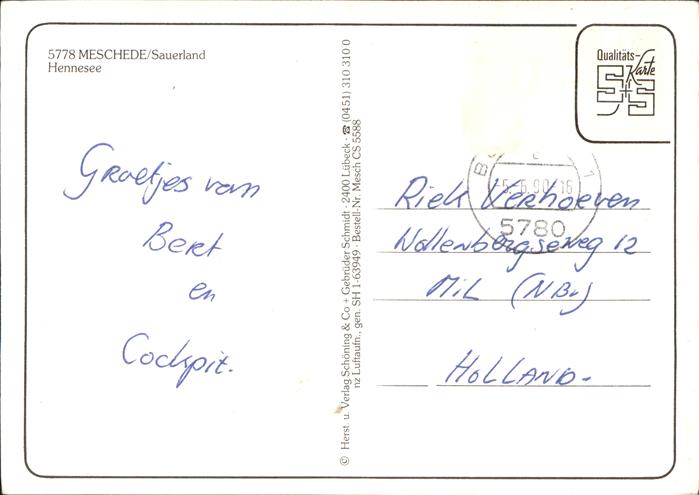 5778 MESCHEDE/Sauerland
Hennesee
Groetjes van
Bert
en
Cockpit.
© Herst. u. Verlag Schöning & Co + Gebrüder Schmidt · 2400 Lübeck · ☎ (0451) 310 310 0
nz Luftaufn., gen. SH 1-63949 · Bestell-Nr. Mesch CS 5588
Qualitäts-
Karte
S+S
-5.-6.90-16
5780
1
Riek Verhoeven
Wollenbergseweg 12
MiL (NBr)
HOLLAND-